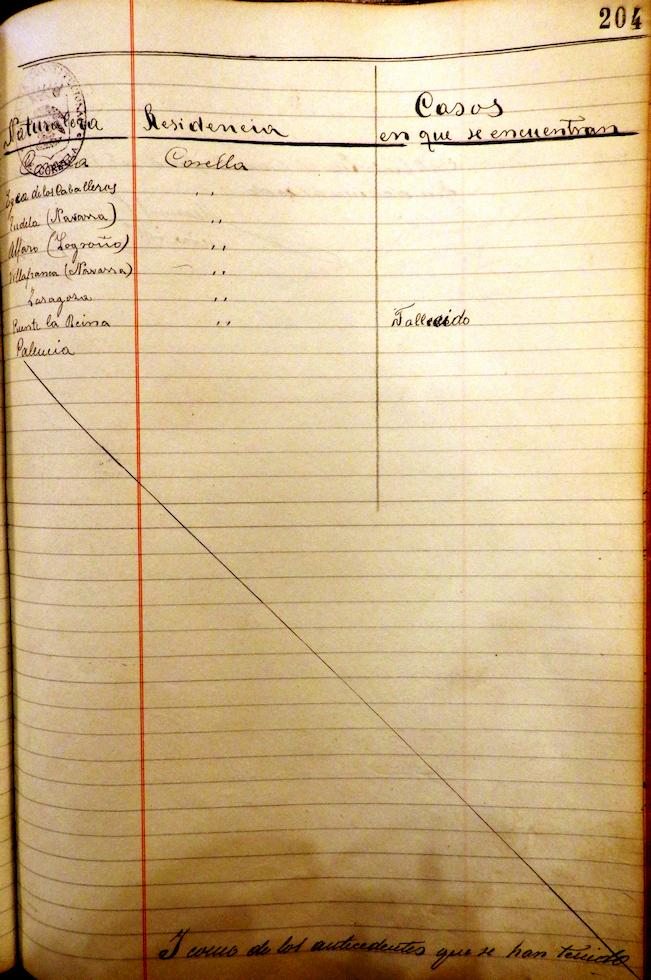 204
Naturaleza Residencia Casos
en que se encuentran
Corella
Egea de los Caballeros ,,
Tudela (Navarra) ,,
Alfaro (Logroño) ,,
Villafranca (Navarra) ,,
Zaragoza ,,
Puente la Reina ,, Fallecido
Palencia
Y como de los antecedentes que se han tenido